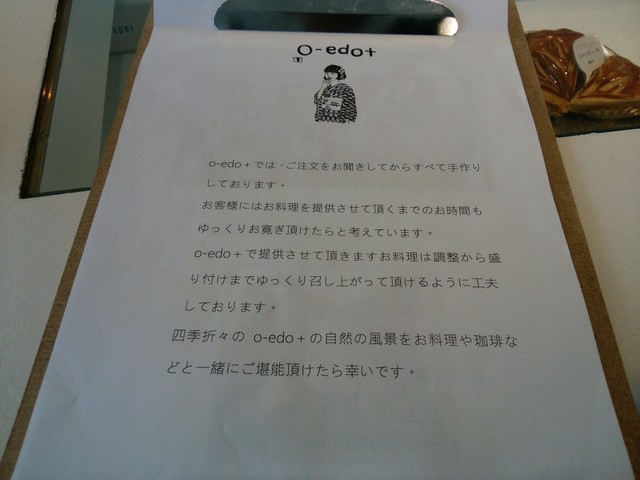 o-edo+
o-edo+では、ご注文をお聞きしてからすべて手作り
しております。
お客様にはお料理を提供させて頂くまでのお時間も
ゆっくりお寛ぎ頂けたらと考えています。
o-edo+で提供させて頂きますお料理は調整から盛
り付けまでゆっくり召し上がって頂けるように工夫
しております。
四季折々の o-edo+の自然の風景をお料理や珈琲な
どと一緒にご堪能頂けたら幸いです。